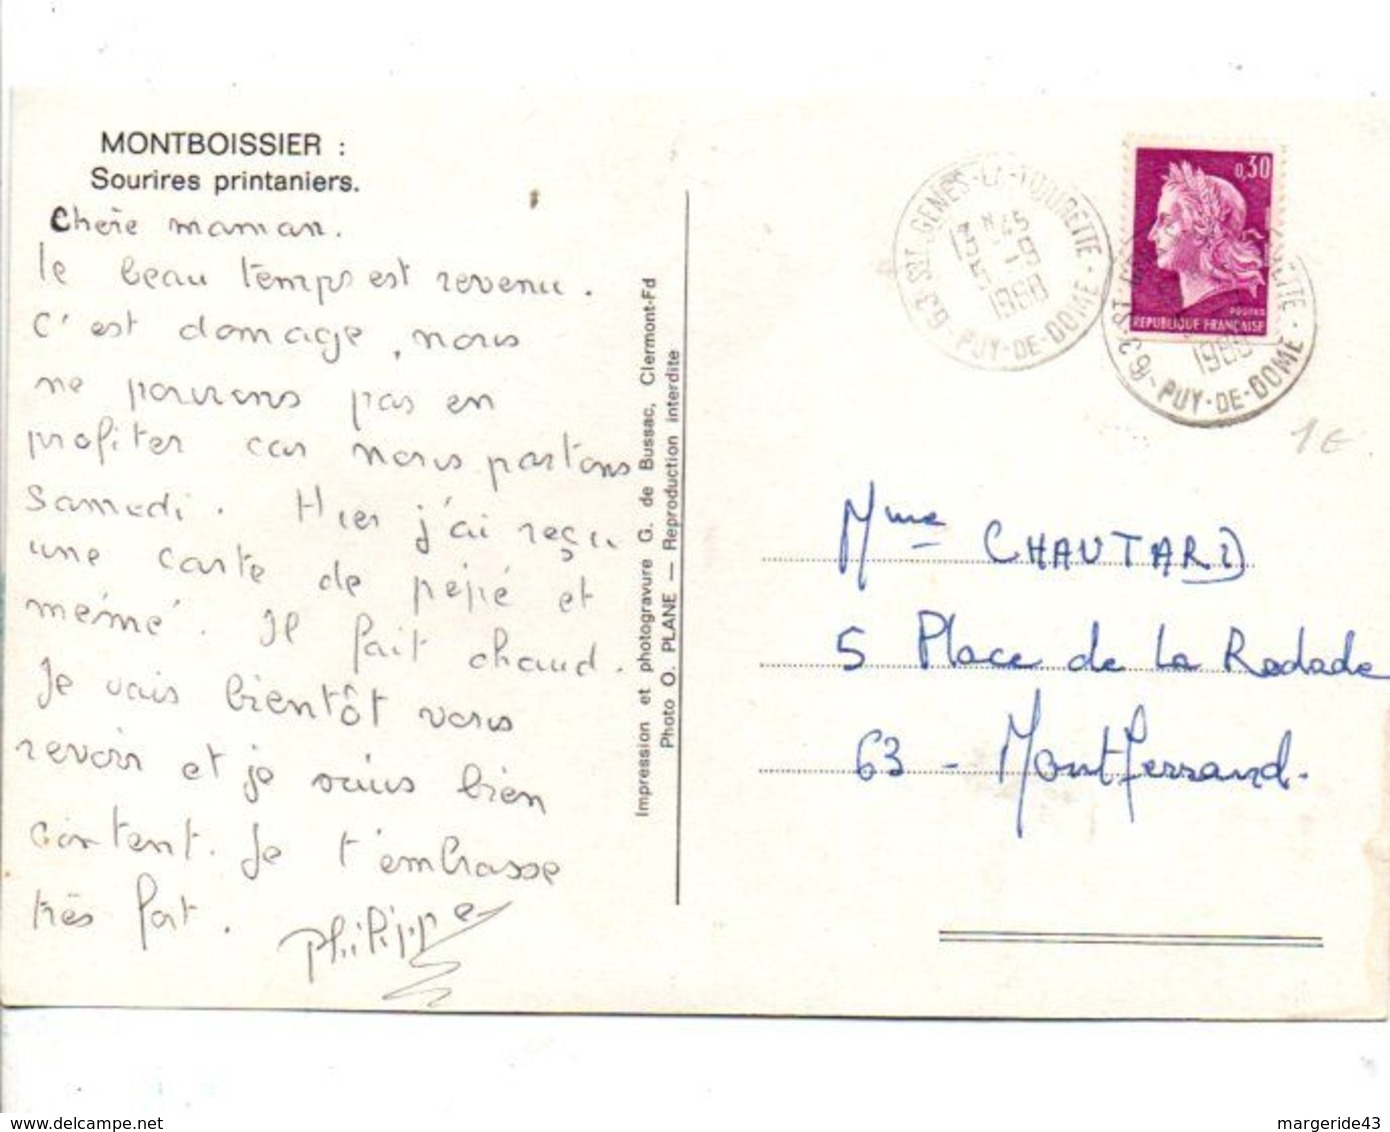 MONTBOISSIER :
Sourires printaniers.
Chère maman.
le beau temps est revenu.
C'est domage, nous
ne pourrons pas en
profiter car nous partons
samedi. Hier j'ai reçu
une carte de pépié et
mémé. Il fait chaud.
Je vais bientôt vous
revoir et je suis bien
content. Je t'embrasse
très fort.
Philippe
Impression et photogravure G. de Bussac, Clermont-Fd
Photo O. PLANE — Reproduction interdite
63 ST GENES-LA-TOURETTE
1968
PUY-DE-DOME
0,30
POSTES
REPUBLIQUE FRANÇAISE
PUY-DE-DOME
1€
Mme CHAUTARD
5 Place de la Rodade
63 - Montferrand.
margeride43